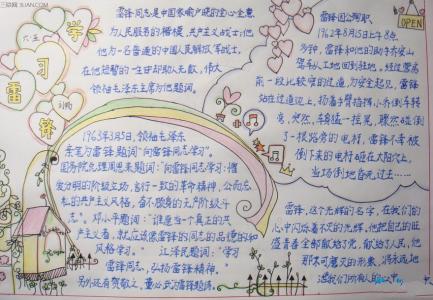 三联网 3LIAN.COM
学
习
雷
锋
雷锋同志是中国家喻户晓的全心全意
为人民服务的楷模,共产主义战士;他
作为一名普通的中国人民解放军战士,
在他短暂的一生中却助人无数,伟大
领袖毛泽东主席为他题词。
1963年3月5日,领袖毛泽东
亲笔为雷锋题词“向雷锋同志学习”。
国务院总理周恩来题词:“向雷锋同志学习:憎
爱分明的阶级立场,言行一致的革命精神,公而忘
私的共产主义风格,奋不顾身的无产阶级斗
志”。邓小平题词:“谁愿当一个真正的共
产主义者,就应该像雷锋同志的品德和
风格学习。”江泽民题词:“学习
雷锋同志,弘扬雷锋精神。”
雷锋因公殉职
OPEN
1962年8月15日上午8点
多钟,雷锋和他的助手乔安山
驾车从工地回到驻地,
前一段比较窄的过道,为安全起见,雷锋
站在过道边上,扬着手臂指挥小乔倒车转
弯,突然,车轮一滑,
了一根路旁的电杆,雷锋不幸被
倒下来的电杆砸在太阳穴上,
当场倒地昏死过去……
雷锋,这个光辉的名字,在我们的
心中闪烁着不灭的光辉,他把自己的旺
盛青春全部献给了党,献给了人民,他
那不可磨灭的形象,将永远地